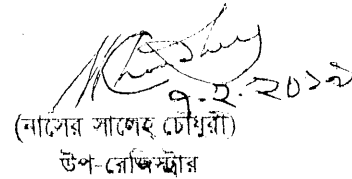 ৭.২.২০১২
(নাসের সালেহ চৌধুরী)
উপ-রেজিস্ট্রার